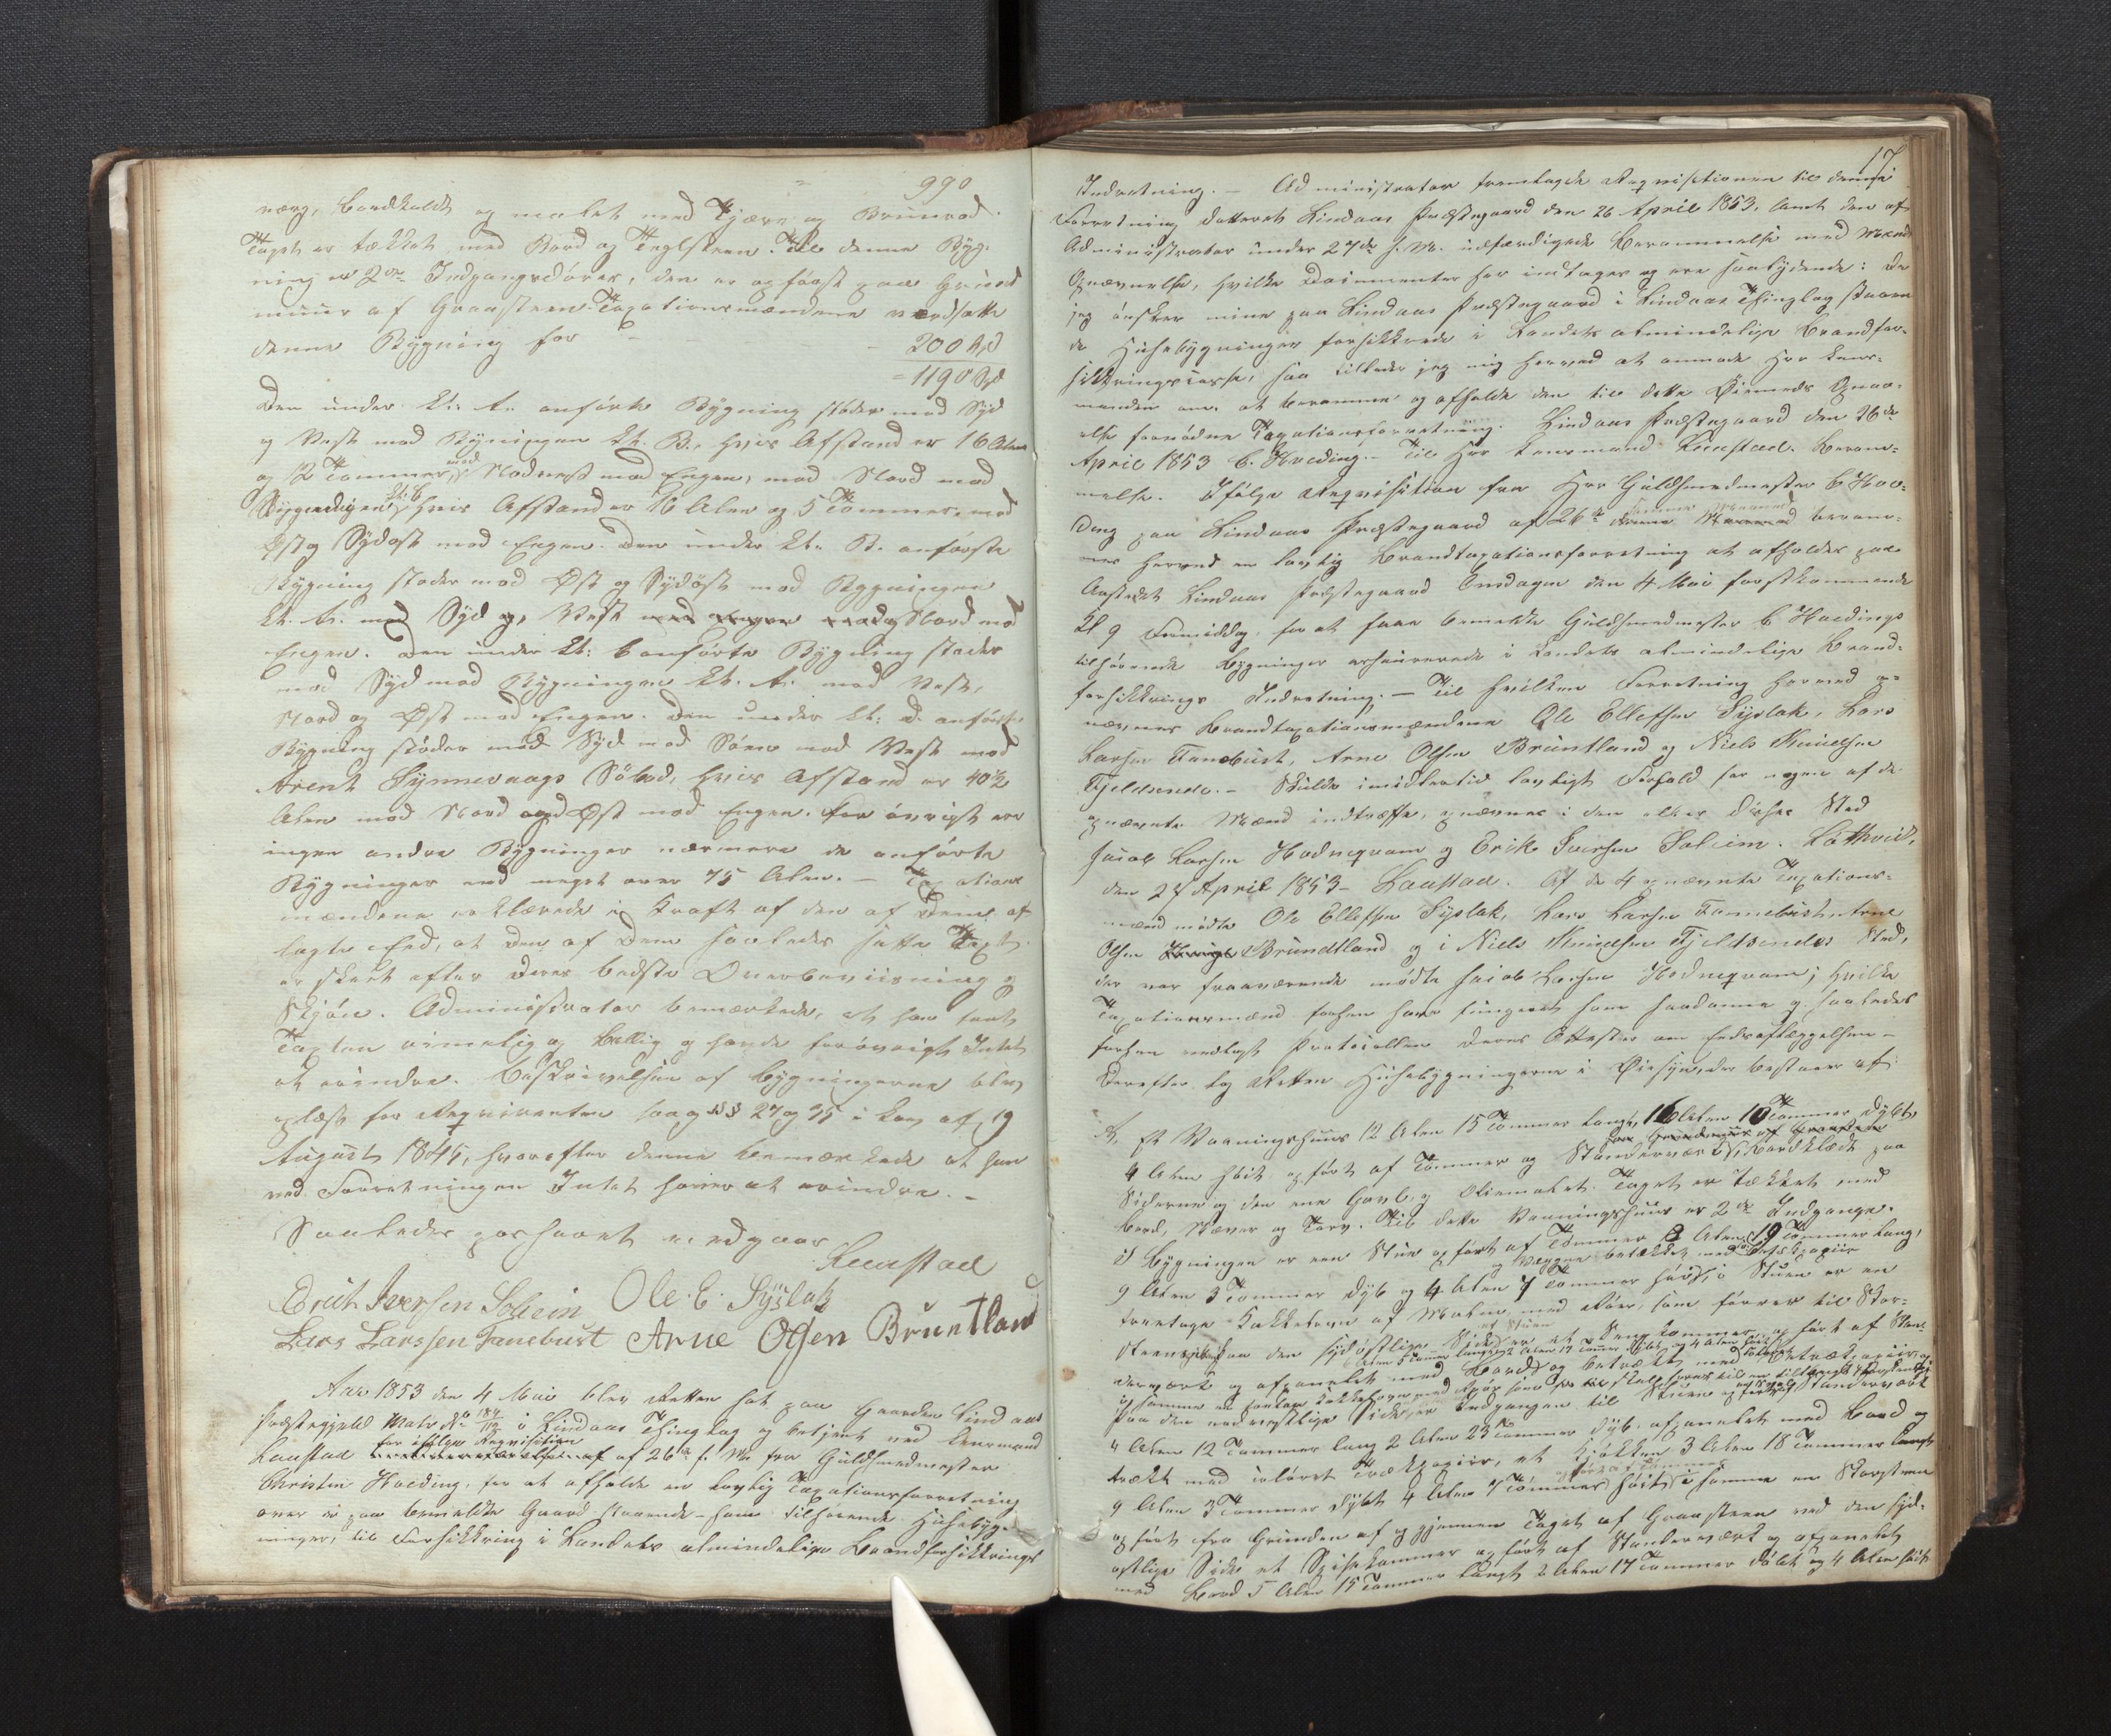 990
værg, bordkledt og malet med Tjære og Brunrød.
Taget er tækket med Bord og Teglsteen. Til denne Byg-
ning er 2de Indgangsdöre, den er opført paa Grund
muur af Graasteen. Taxationsmændene værdsatte
denne Bygning for - 200 Spd
= 1190 Spd
Den under Lt: A. anførte Bygning støder mod Syd
og Vest mod Bygningen Lt. B., hvis Afstand er 16 Alen
og 12 Tommer, mod Nordvest mod Engen, mod Nord mod
Bygningen Lt: C hvis Afstand er 16 Alen og 5 Tommer, mod
Øst og Sydost mod Engen. Den under Lt. B. anførte
Bygning støder mod Øst og Sydöst mod Bygningen
Lt. A. mod Syd og, Vest med engen mod og Nord mod
Engen. Den under Lt: C anførte Bygning støder
mod Syd mod Bygningen Lt. A. mod Vest,
Nord og Øst mod Engen. Den under Lt: D. anførte
Bygning støder mod Syd mod Söen mod Vest mod
Arent Synnevaags Söbod, hvis Afstand er 40½
Alen mod Nord og Øst mod Engen. For övrigt ere
ingen andre Bygninger nærmere de anførte
Bygninger end meget over 75 Alen. - Taxations
mændene erklærede i Kraft af den af Dem af
lagte Eed, at den af Dem saaledes satte Taxt
er skeet efter Deres bedste Overbeviisning og
Skjön. Administrator bemærkede, at han fandt
Taxten rimelig og billig og havde forövrigt Intet
at erindre. Beskrivelsen af Bygningerne blev
oplæst for Reqvirenten saa og §§ 27 og 35 i Lov af 19
August 1845, hvorefter denne bemærkede at han
ved Forretningen Intet havde at erindre. -
Saaledes passeret vedgaar
Lenstad
Erich Iversen Soleim Ole. E. Syslak
Lars Larssen Fanebust Arne Olsen Bruntland
Aar 1853 den 4 Mai blev Retten sat paa Gaarden Lindaas
Præstegjeld Matr No i Lindaas Thinglag og betjent ved Lensmand
Lenstad for ifölge Reqvisition af 26de f. M. fra Guldsmedmester
Christen Hveding, for at afholde en lovlig Taxationsforretning
over de paa bemeldte Gaard staaende - ham tilhørende Huusebyg-
ninger, til Forsikkring i Landets almindelige Brandforsikkrings
17
Indretning. - Administrator fremlagde Reqvisitionen til denne
Forretning datteret Lindaas Præstegaard den 26 April 1853, samt den af
Administrator under 27de f. M. udfærdigede Berammelse med Mænds
Opnævnelse, hvilke Documenter her indtages og ere saalydende: Da
jeg ønsker mine paa Lindaas Præstegaard i Lindaas Thinglag staaen
de Huusebygninger forsikkrede i Landets almindelige Brandfor-
sikkringscasse, saa tillader jeg mig herved at anmode Hr Lens-
manden om, at beramme og afholde den til dette Øiemeds Opnaa-
else fornødne Taxationsforretning. Lindaas Præstegaard den 26de
April 1853 C. Hveding. - Til Hr Lensmand Lenstad. Beram-
melse. Ifølge Reqvisition fra Hr Guldsmedmester C Hve-
ding paa Lindaas Præstegaard af 26de denne Maaned beram-
mes herved en lovlig Brandtaxationsforretning at afholdes paa
Aastedet Lindaas Præstegaard Onsdagen den 4 Mai førstkommende
Kl 9 Formiddag, for at faae bemeldte Guldsmedmester C Hvedings
tilhørende Bygninger assurerede i Landets almindelige Brand-
forsikkrings Indretning. - Til hvilken Forretning herved op-
nævnes Brandtaxationsmændene Ole Ellefsen Syslak, Lars
Larsen Fanebust, Arne Olsen Bruntland og Niels Knudsen
Fjeldsende. - Skulde imidlertid lovligt Forfald for nogen af de
opnævnte Mænd indtræffe, opnævnes i den eller disses Sted
Jacob Larsen Hodneqvam og Erik Iversen Soleim. Lothvedt,
den 27 April 1853 - Lenstad. Af de 4 opnævnte Taxations-
mænd mødte Ole Ellefsen Syslak, Lars Larsen Fannebust, Arne
Olsen Brundtland og i Niels Knudsen Fjeldsendes Sted,
der var fraværende mødte Jacob Larsen Hodneqvam; hvilke
Taxationsmænd forhen have fungeret som saadanne og saaledes
forhen vedlagt Protocollen deres Attester om Edsaflæggelsen -
Derefter tog Retten Huusebygningerne i Øiesyn, der bestaaer af:
A, Et Vaaningshuus 12 Alen 15 Tommer langt, 16 Alen 10 Tommer dybt,
4 Alen høit, opført af Tømmer og Standerværk, bordklædt paa
Siderne og den ene Gavl, og oliemalet. Taget er tækket med
Bord, Næver og Torv. Til dette Vaaningshuus er 2de Indgange.
I Bygningen er een Stue opført af Tømmer 8 Alen 19 Tommer lang,
og Væggene betrækket med Betrækpapiir
9 Alen 3 Tommer dyb og 4 Alen 7 Tommer høi, i Stuen er en
treetages Kakkelovn af Malm, med Röer, som fører til Skor-
steenspiben. Paa den sydøstlige Side af Stuen er et Sengkammer opført af Stan-
derværk og afpanelet med Bord og betrukket med Betrækpapiir,
i samme en Kakkelovn med Rør
Paa den nordvestlige Side, er Indgangen til Stuen opført af Standerværk
4 Alen 12 Tommer lang 2 Alen 23 Tommer dyb, afpanelet med Bord og
trækt med coleret Trækpapiir, et Kjøkken 3 Alen 18 Tommer langt
9 Alen 3 Tommer dybt 4 Alen 7 Tommer høit, opført af Tømmer i samme en Skorsteen
opført fra Grunden af og gjennem Taget af Graasteen ved den syd-
østlige Side et Spisekammer opført af Standerværk og afpanelet
med Bord 5 Alen 15 Tommer langt 2 Alen 17 Tommer dybt og 4 Alen høit